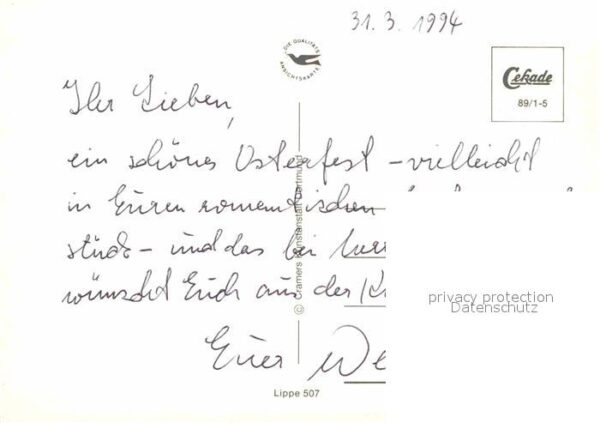 31.3.1994
DIE QUALITÄTS
ANSICHTSKARTE
Cekade
89/1-5
Ihr Lieben,
ein schönes Osterfest – vielleicht
in Euren romantischen
stück – und das bei
wünscht Euch aus der
Euer We
© Cramers Kunstanstalt Dortmund
privacy protection
Datenschutz
Lippe 507